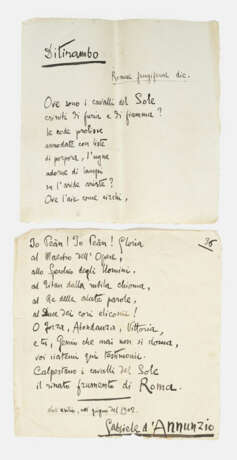 Ditirambo
Romae frugiferae dic.
Ove sono i cavalli del Sole
criniti di furia e di fiamma?
le code prolisse
annodate con liste
di porpora, l'ugne
adorne di lampi
su l'aride ariste?
Ove l'aie come circhi,
Io Peàn! Io Peàn! Gloria
al Maestro dell'Opere,
allo Specchio degli Uomini,
al Titan dalla nubila chioma,
al Re delle alate parole,
al Duce dei cori eliconii!
O Forza, Abondanza, Vittoria,
e tu, Genio che mai non si doma,
voi siatemi qui testimonii.
Calpestano i cavalli del Sole
il rinato frumento di Roma.
giugno del 1902.
Gabriele d'Annunzio